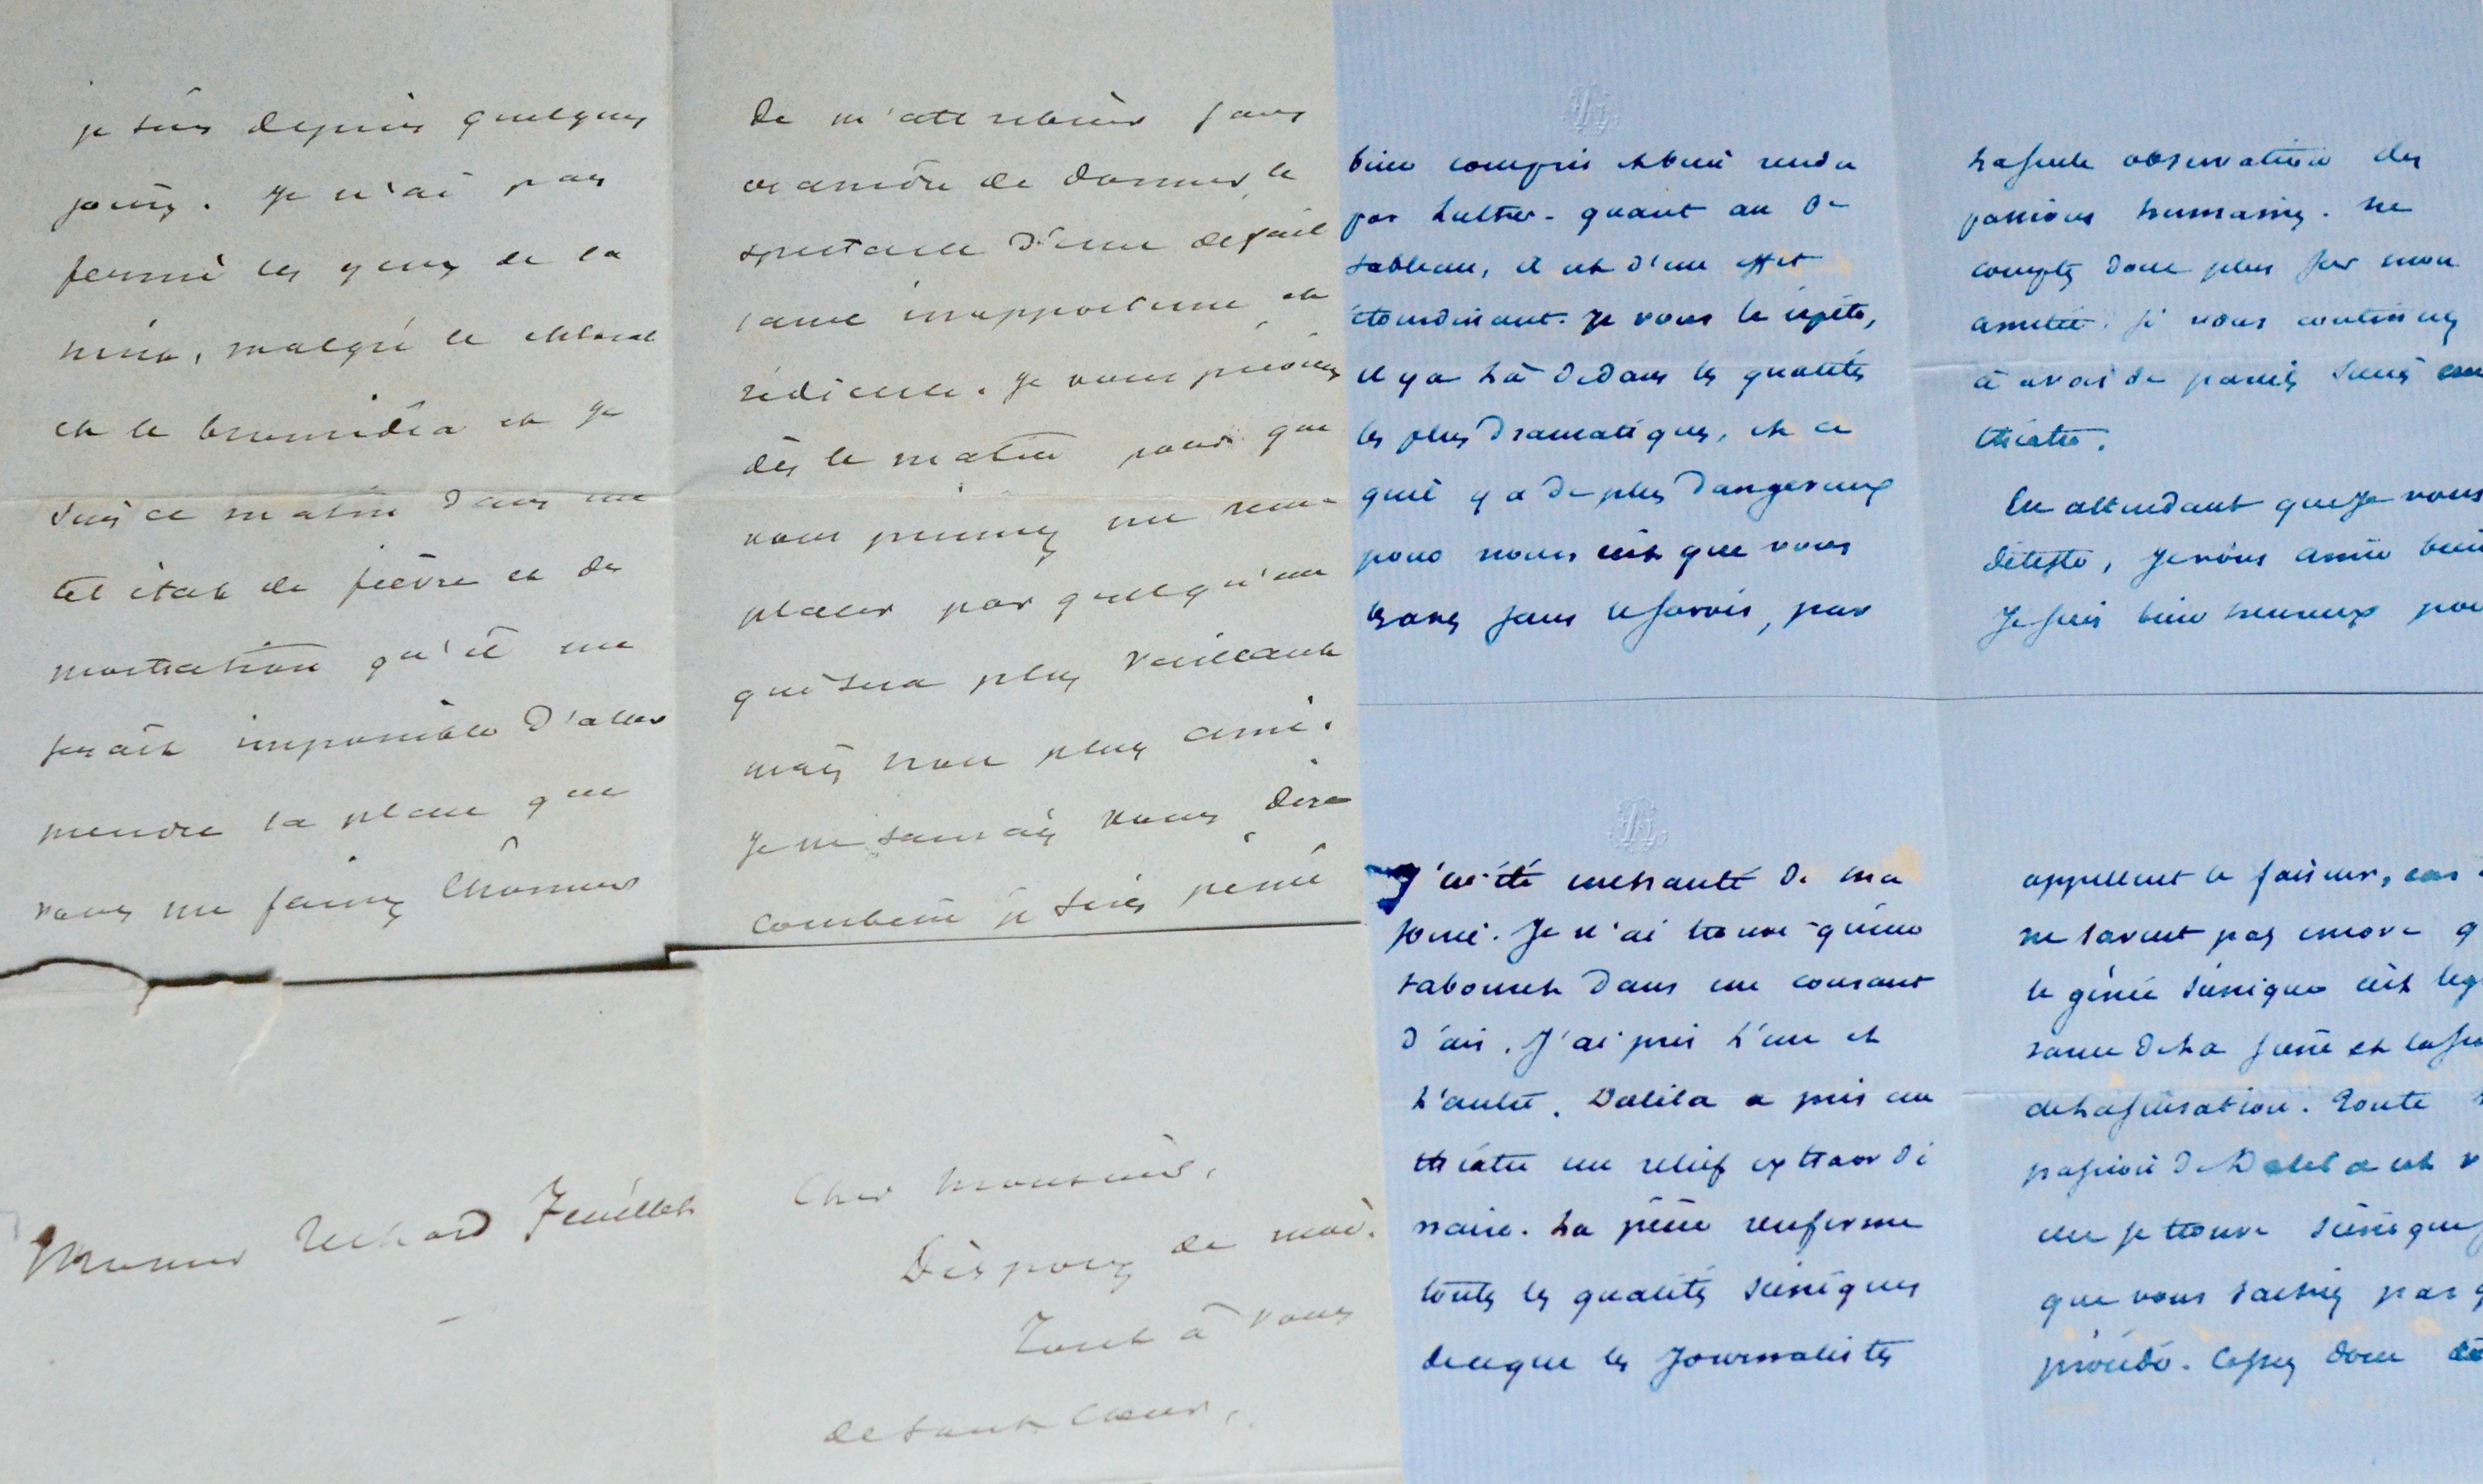 je suis depuis quelques
jours. je n'ai pas
fermé les yeux de la
nuit, malgré le chloral
et le bromidia et je
suis ce matin dans un
tel état de fièvre et de
prostration qu'il me
serait impossible d'aller
prendre la place que
vous me faisiez l'honneur
de m'attribuer sans
craindre de donner le
spectacle d'une défail
lance inopportune et
ridicule. Je vous préviens
dès le matin pour que
vous preniez un rem-
placer par quelqu'un
qui sera plus vaillant
mais non plus ami.
Je ne saurais vous dire
combien je suis peiné
Monsieur Richard Feuillet
Cher Monsieur,
Disposez de moi.
Tout à vous
de tout cœur,
bien compris et bien rendu
par Luther - quant au 3e
tableau, il est d'un effet
étourdissant. Je vous le répète,
il y a là dedans les qualités
les plus dramatiques, et ce
qu'il y a de plus dangereux
pour nous c'est que vous
sans le savoir, par
la seule observation des
passions humaines. Ne
comptez donc plus sur mon
amitié si vous continuez
à avoir de pareils succès au
théâtre.
En attendant que je vous
déteste, je vous aime bien
Je suis bien heureux pour
J'ai été enchanté de ma
soirée. Je n'ai trouvé qu'un
tabouret dans un courant
d'air. J'ai pris l'un et
l'autre. Dalila a pris au
théâtre un relief extraordi
naire. La pièce renferme
toutes les qualités scéniques
de ce que les journalistes
appellent le faiseur, car
ne savent pas encore q
le génie scénique c'est
de la scène et la
de la sensation. Toute
passion de Dalila est
elle je trouve scénique
que vous sachiez par
procédé. Cessez donc de